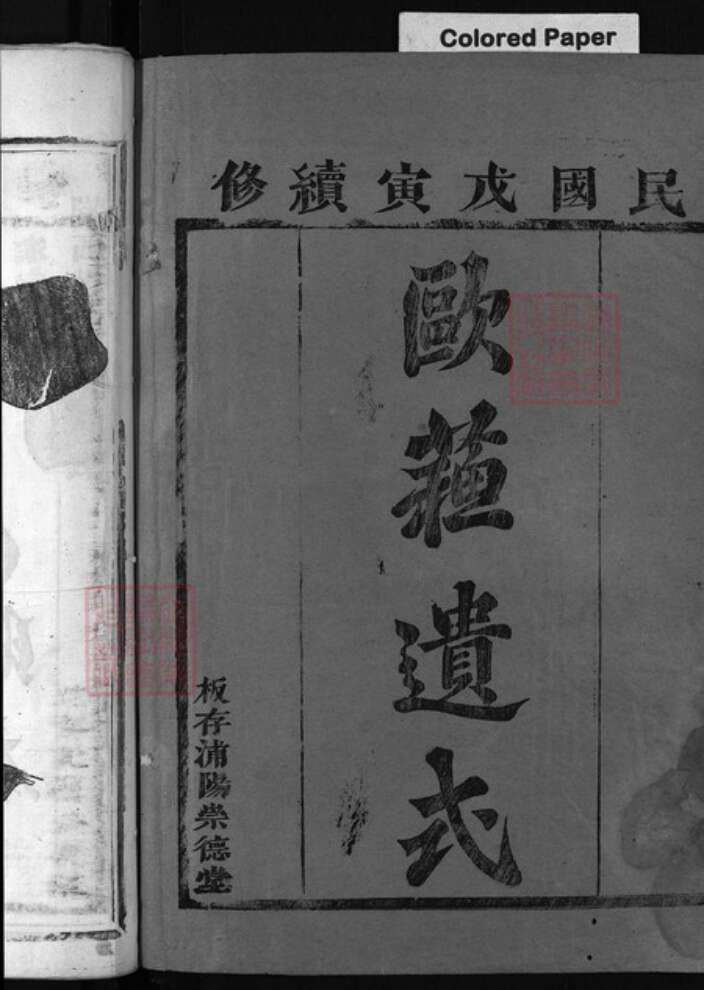 Colored Paper
民國戊寅續修
歐蘓遺式
板存浦陽崇德堂